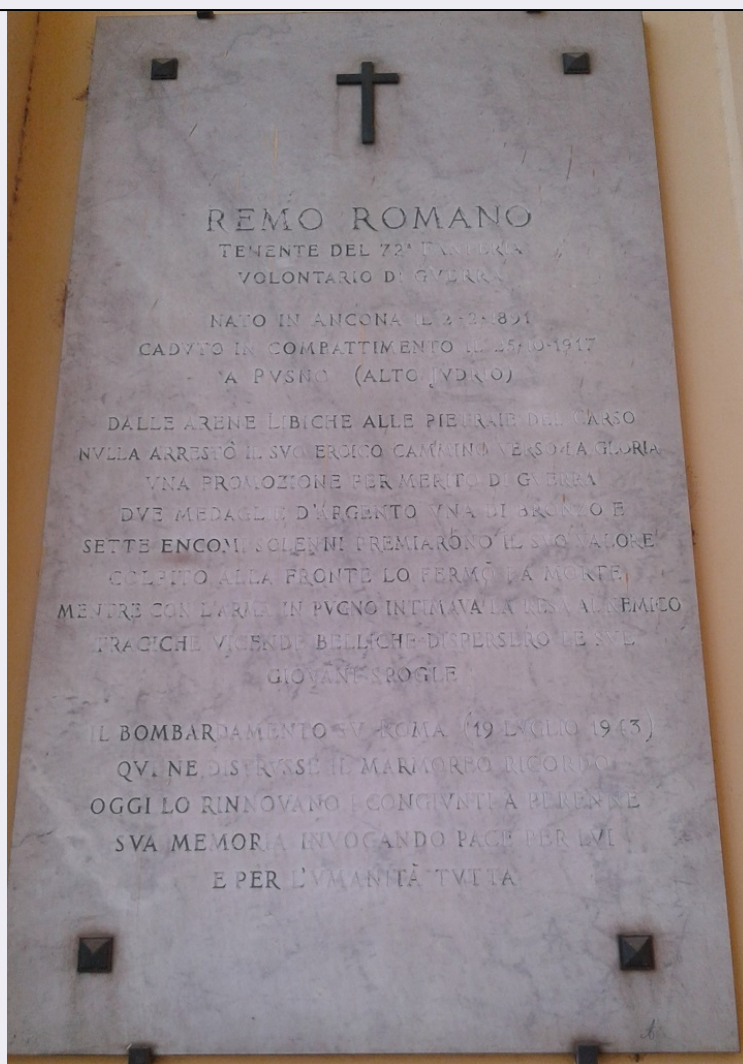 REMO ROMANO
TENENTE DEL 72° FANTERIA
VOLONTARIO DI GVERRA
NATO IN ANCONA IL 2-2-1891
CADVTO IN COMBATTIMENTO IL 25-10-1917
A PVSNO (ALTO JVDRIO)
DALLE ARENE LIBICHE ALLE PIETRAIE DEL CARSO
NVLLA ARRESTÒ IL SVO EROICO CAMMINO VERSO LA GLORIA
VNA PROMOZIONE PER MERITO DI GVERRA
DVE MEDAGLIE D'ARGENTO VNA DI BRONZO E
SETTE ENCOMI SOLENNI PREMIARONO IL SVO VALORE
COLPITO ALLA FRONTE LO FERMÒ LA MORTE
MENTRE CON L'ARMA IN PVGNO INTIMAVA LA RESA AL NEMICO
TRAGICHE VICENDE BELLICHE DISPERSERO LE SVE
GIOVANI SPOGLE
IL BOMBARDAMENTO SV ROMA (19 LVGLIO 1943)
QVI NE DISTRVSSE IL MARMOREO RICORDO
OGGI LO RINNOVANO I CONGIVNTI A PERENNE
SVA MEMORIA INVOCANDO PACE PER LVI
E PER L'VMANITÀ TVTTA